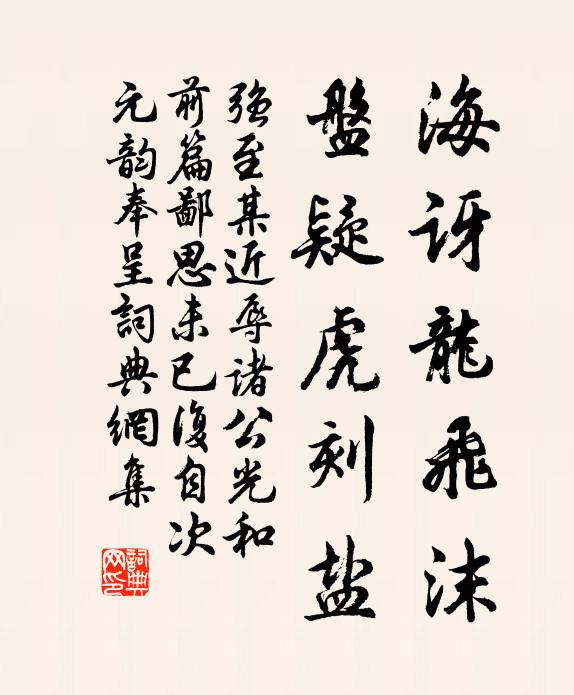 海訝龍飛沫
盤疑虎刻盐
強至某近辱诸公光和
前篇鄙思未已復自次
元韵奉呈詞典網集
詞典网印